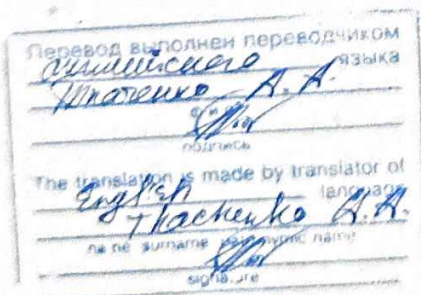 Перевод выполнен переводчиком
английского языка
Ткаченко А. А.
подпись
The translation is made by translator of
English language
Tkachenko A. A.
name surname patronymic name
signature